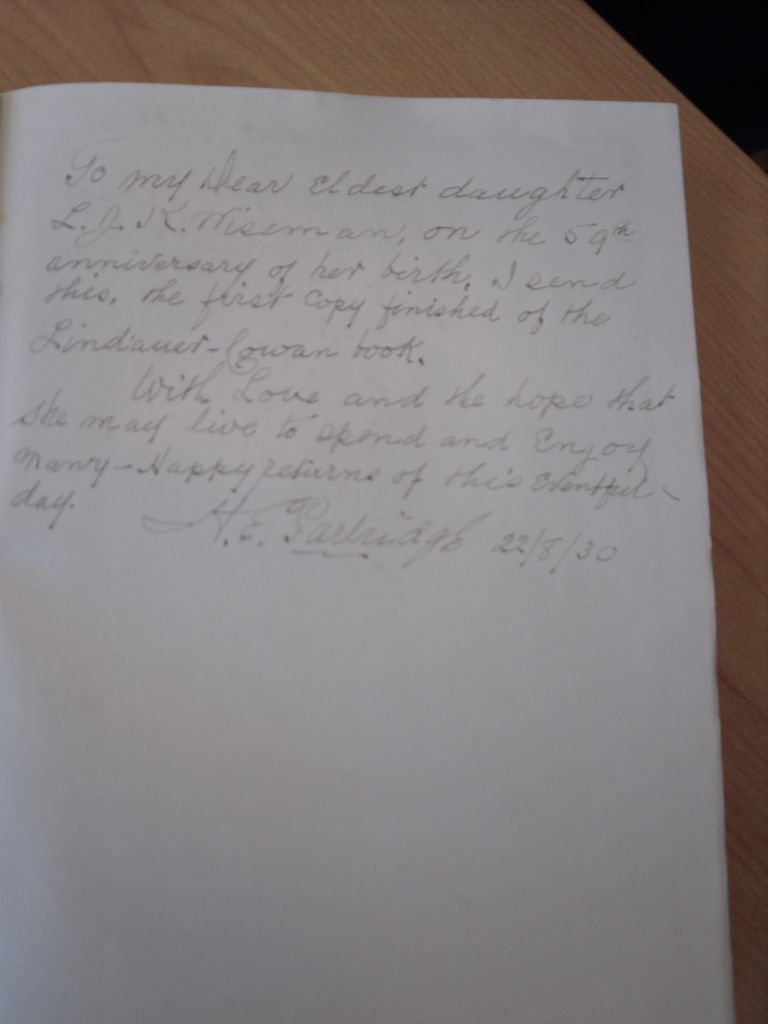 To my Dear Eldest daughter
L. J. K. Wiseman, on the 59th
anniversary of her birth, I send
this, the first Copy finished of the
Lindauer-Cowan book.
With Love and the hope that
she may live to spend and Enjoy
many-Happy returns of this Eventful
day.
H. E. Partridge 22/8/30